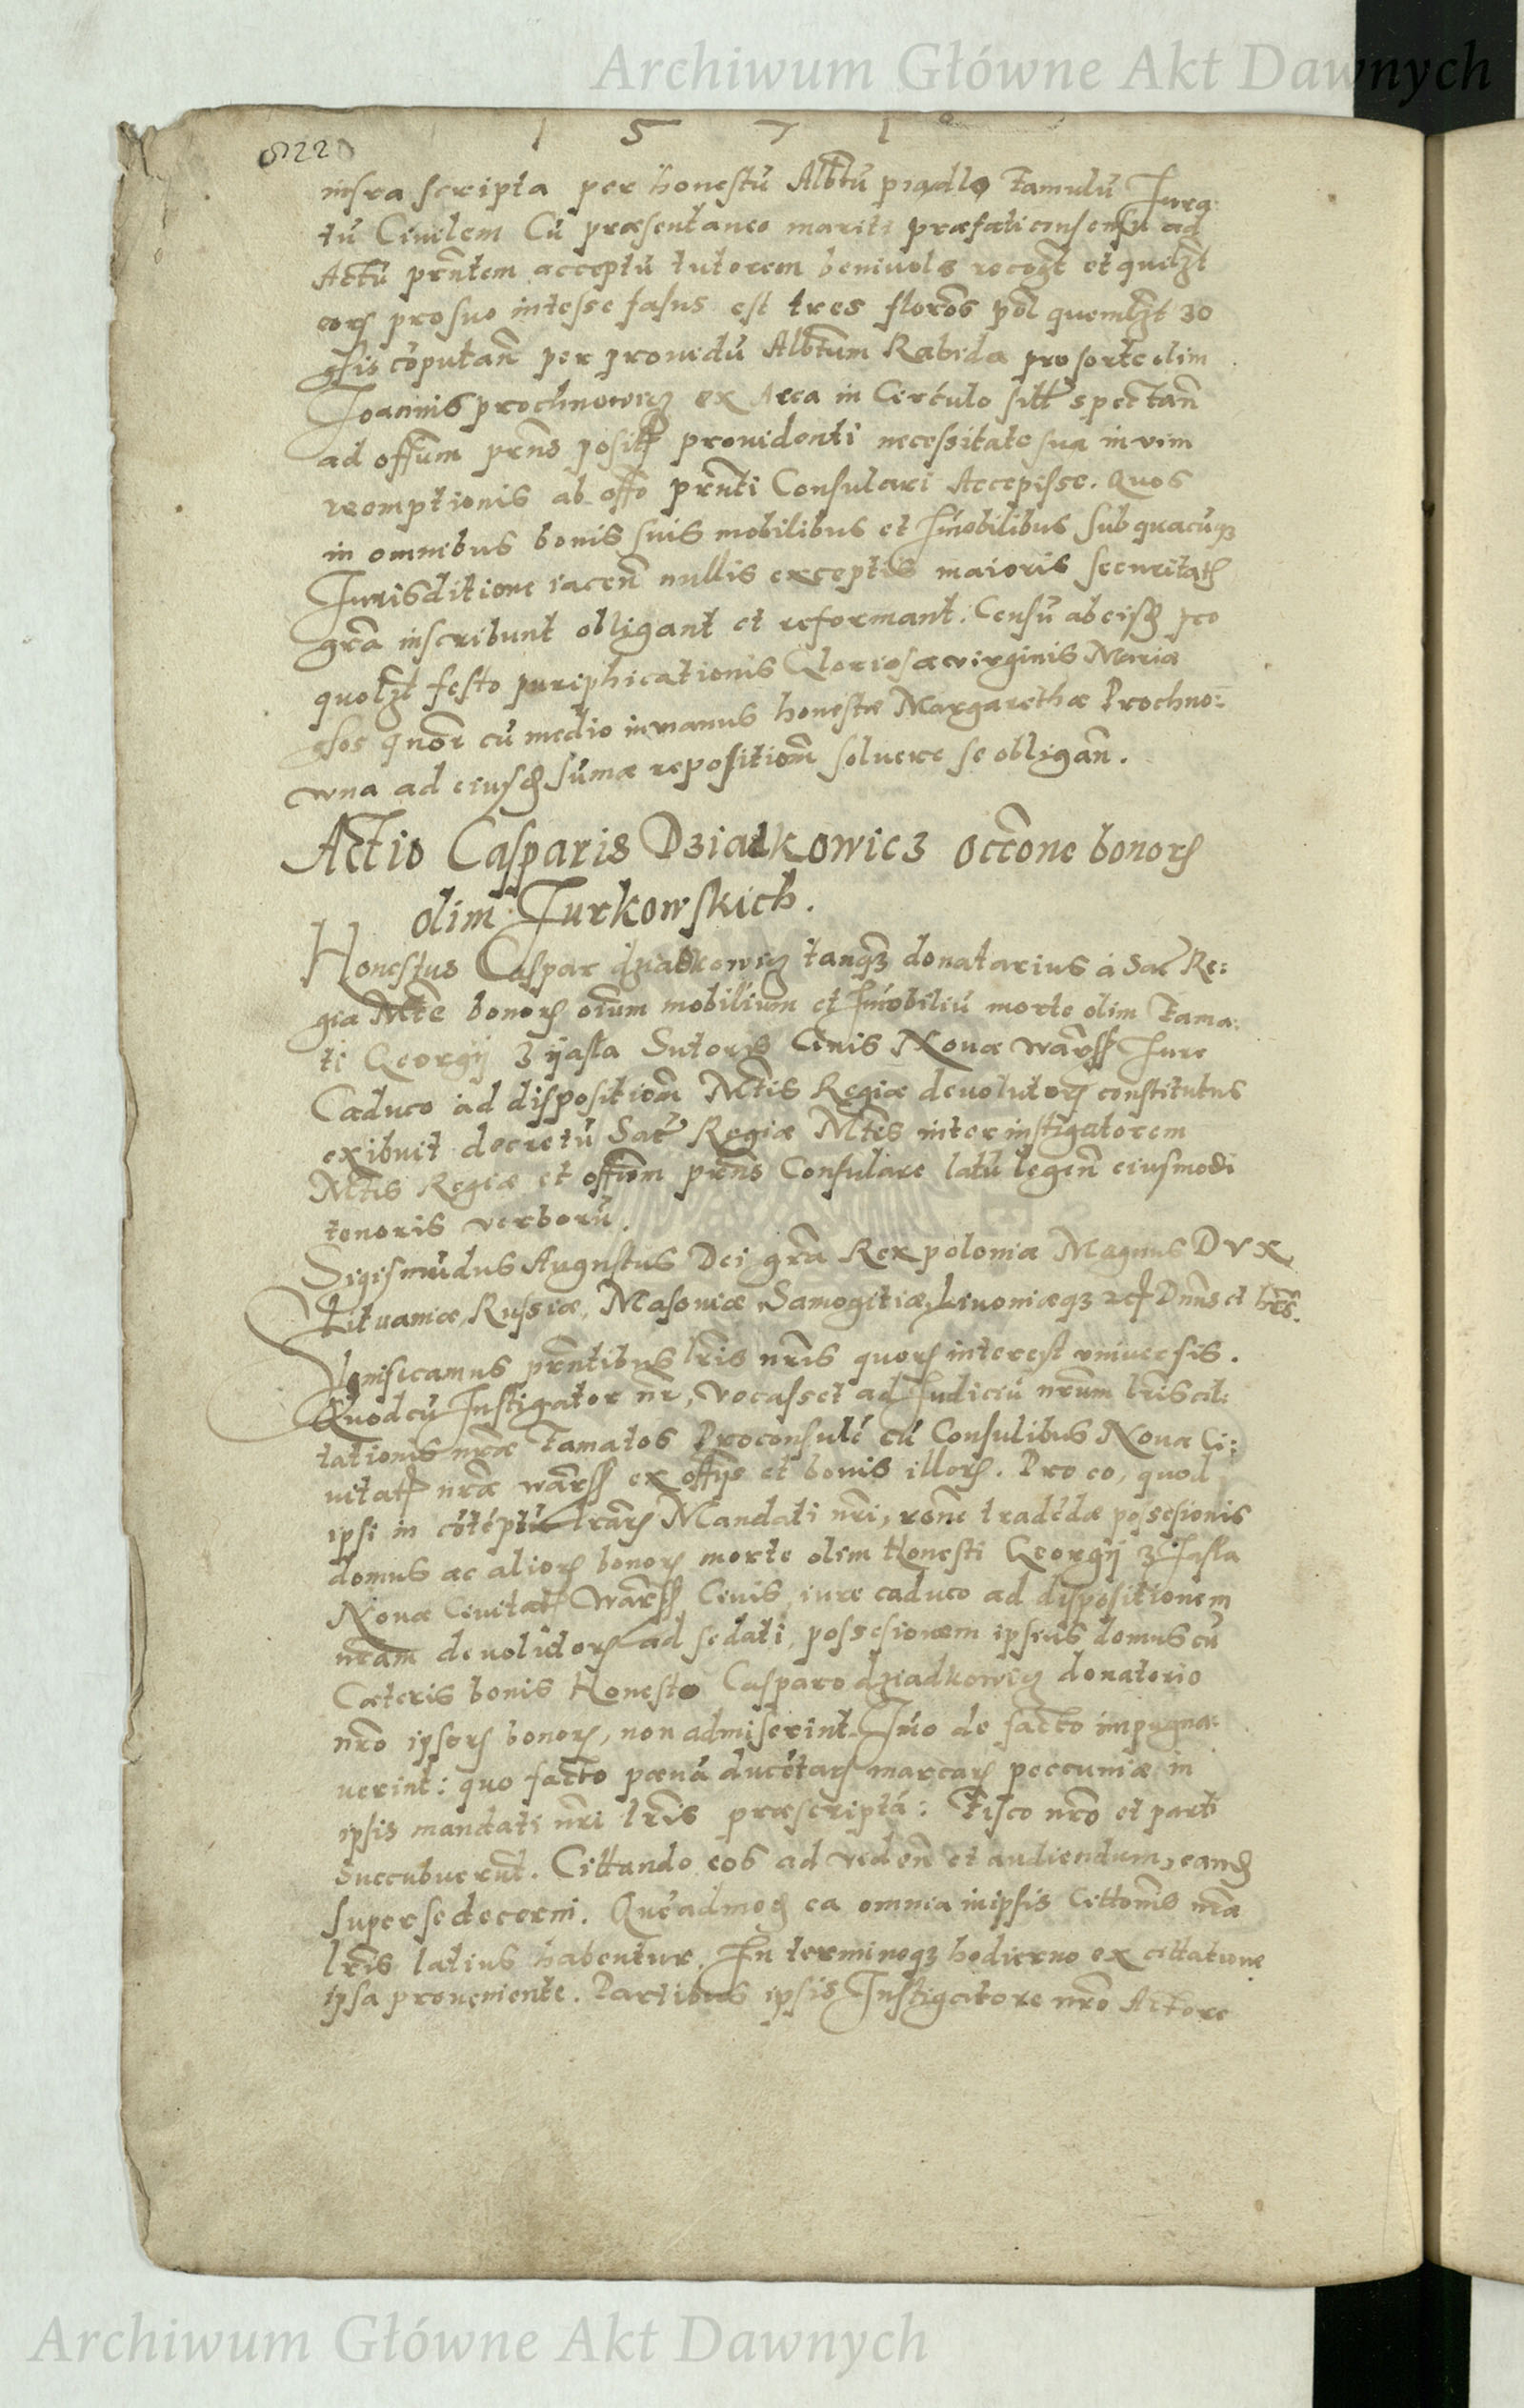 Archiwum Główne Akt Dawnych
1 5 7 1
822
infra scripta per honestū Albtū famulū Iura
tū Ciuilem Cū præsentaneo mariti præfati consensu ad
Actū prñtem acceptū tutorem beniuole recogt et quilzt
eorū pro suo intesse fasus est tres floros pol quemlzt 30
gsis cōputan̄ per prouidū Albtum Rabida pro sorte olim
Ioannis prochnowicz ex Area in Cerculo sitt spectan̄
ad offūm prñs posit prouidenti necessitate sua in vim
reemptionis ab offo prñti Consulari Accepisse. Quos
in omnibus bonis suis mobilibus et Īmobilibus sub quacūqz
Iurisditione iacen̄ nullis exceptis maioris securitatꝭ
gr̄a inscribunt obligant et reformant. Censū ab eisdꝫ
quolzt festo puriphicationis Gloriosæ virginis Mariæ
gsos cū medio in manus honestæ Margarethæ Prochno-
wna ad eiusdꝫ sūmæ repositiom̄ soluere se obligan̄.
Actio Casparis Dziadkowicz occōne bonorꝫ
olim Turkowskich.
Honestus Caspar dziadkowicz tanqꝫ donatarius a Sac̄ Re:
gia Mtē bonorꝫ oīum mobilium et Īmobiliū morte olim Fama:
ti Georgij Zijasla Sutoris Ciuis Nouæ warss Iure
Caduco ad dispositiom̄ Mtis Regiæ deuolutorꝫ constitutus
exibuit decretū Sac̄ Regiæ Mtis inter instigatorem
Mtis Regiæ et offium prñs Consulare latū legen̄ eiusmodi
tenoris verborū.
Sigismūdus Augustus Dei gr̄a Rex poloniæ Magnus DVX
Lituaniæ, Russiæ, Masouiæ Samogitiæ, Liuoniæqꝫ Dnñs et hrēs.
Significamus prñtibus lrīs nrīs quorꝫ interest vniuersis.
Quod cū Instigator nr̄, vocasset ad Iudiciū nrūm lrīs cit:
tationis nrǣ Famatos Proconsulē cū Consulibus Noua Ci:
uitatꝭ nrǣ warss ex offys et bonis illorꝫ. Pro eo, quod
ipsi in cōtēptū lrārꝫ Mandati nrī, rōne tradēdæ possesionis
domus ac aliorꝫ bonorꝫ morte olim Honesti Georgij ZIasla
Nouæ Ciuitatꝭ Warss Ciuis, iure caduco ad dispositionem
nrām deuolutorꝫ ad sedati, possesionem ipsius domus cū
Cæteris bonis Honesto Casparo dziadkowicz donatorio
nrō ipsorꝫ bonorꝫ, non admiserint. Īmo de facto impugna:
uerint: quo facto pœnā ducētarꝫ marcarꝫ peccuniæ in
ipsis mandati nrī lrīs præscriptā: Fisco nrō et parti
Succubuerūt. Cittando eos ad viden̄ et audiendum, eandꝫ
super se decerni. Quēadmodꝫ ea omnia in ipsis Cittonis nrǣ
lrīs latius habentur. In terminoqꝫ hodierno ex cittatione
ipsa proueniente. Partibus ipsis Instigatore nrō Actore
Archiwum Główne Akt Dawnych